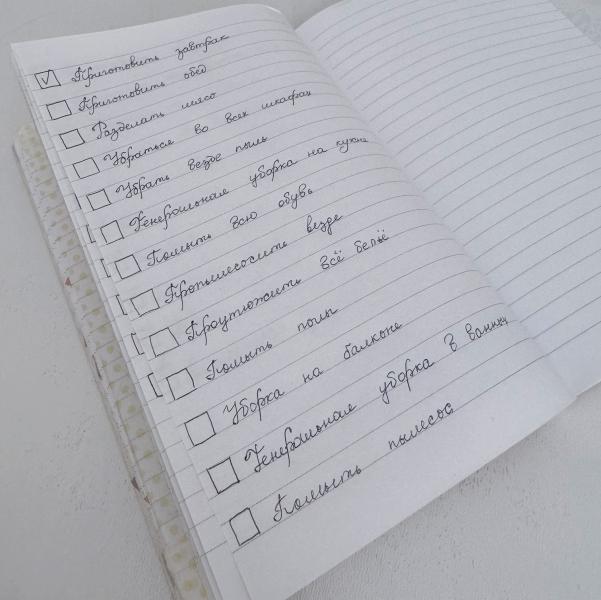 Приготовить завтрак
Приготовить обед
Разделать мясо
Убраться во всех шкафах
Убрать везде пыль
Генеральная уборка на кухне
Помыть всю обувь
Пропылесосить везде
Проутюжить всё бельё
Помыть полы
Уборка на балконе
Генеральная уборка в ванной
Помыть пылесос